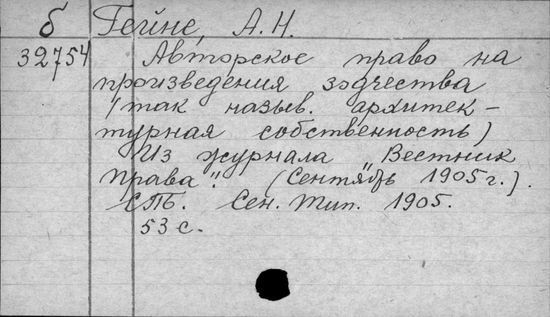 б Гейне, А. Н.
32754 Авторское право на
произведения зодчества
(так назыв. архитек-
турная собственность)
Из журнала „Вестник
права". (Сентябрь 1905 г.).
СПБ. Сен. тип. 1905.
53 с.